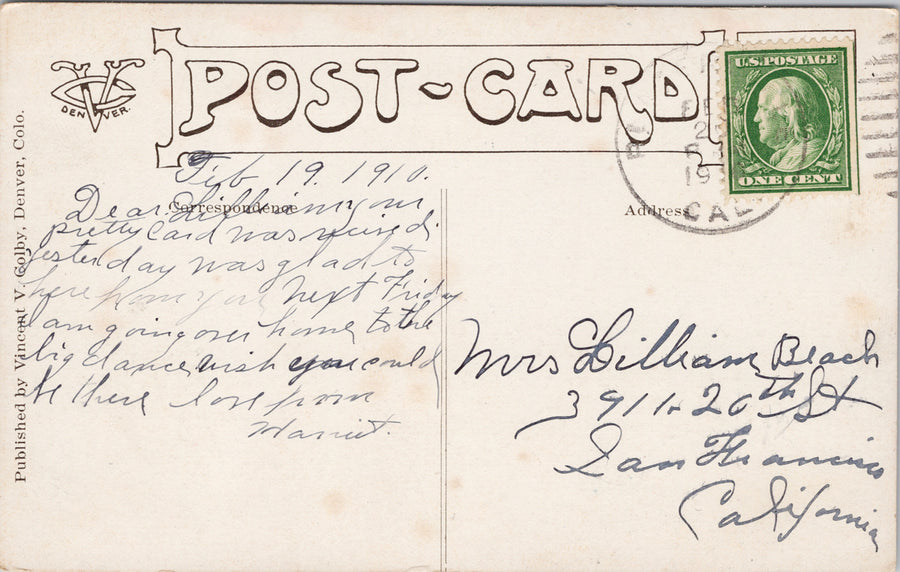 POST-CARD
DENVER.
U.S. POSTAGE
ONE CENT
CAL
Published by Vincent V. Colby, Denver, Colo.
Correspondence
Address
Feb 19. 1910.
Dear Lillian your
pretty Card was recived
yesterday was glad to
here from you next Friday
am going over home to the
big dance wish you could
be there love from
Harriet.
Mrs William Beach
3911 20th St
San Francisco
California